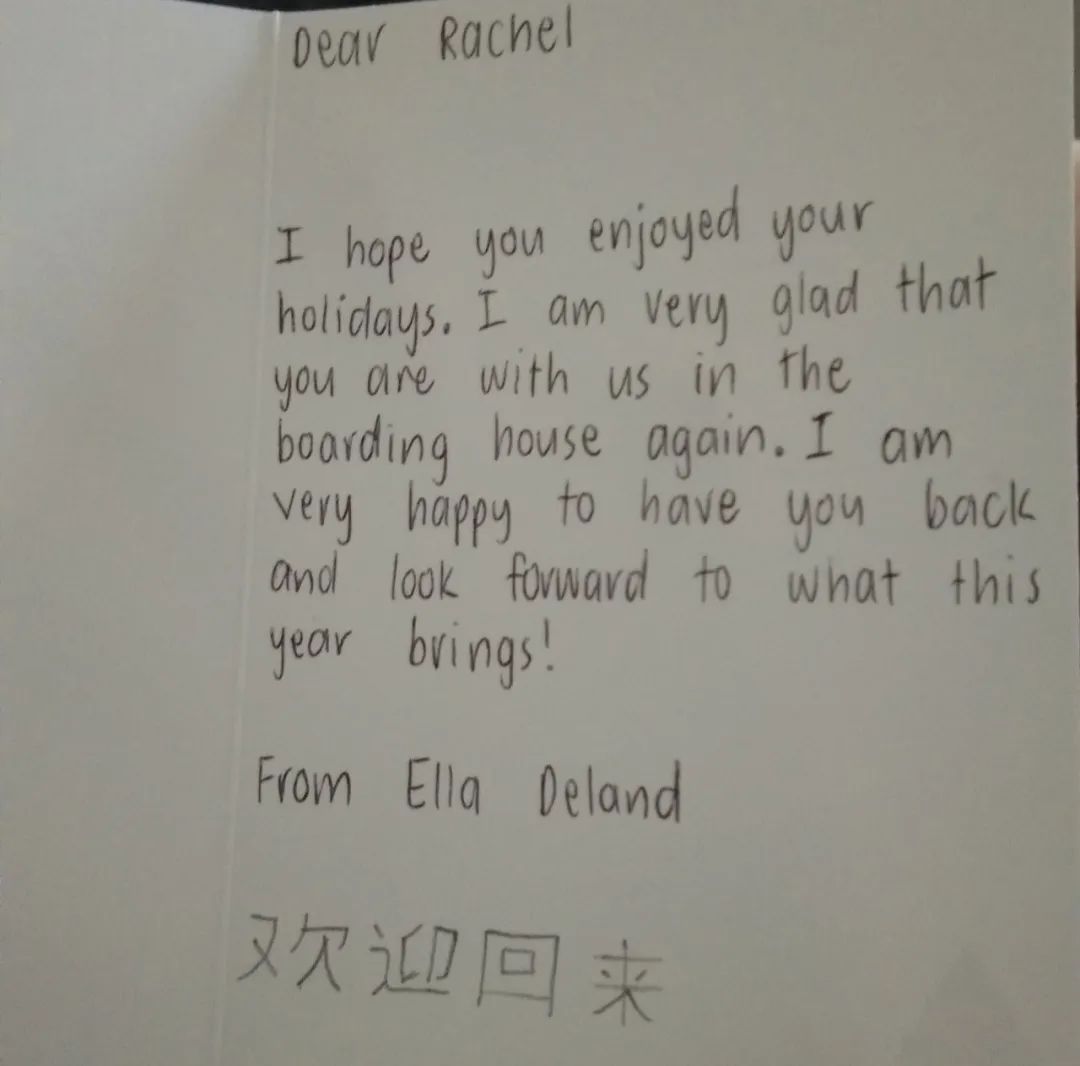 Dear Rachel
I hope you enjoyed your
holidays. I am very glad that
you are with us in the
boarding house again. I am
very happy to have you back
and look forward to what this
year brings!
From Ella Deland
欢迎回来